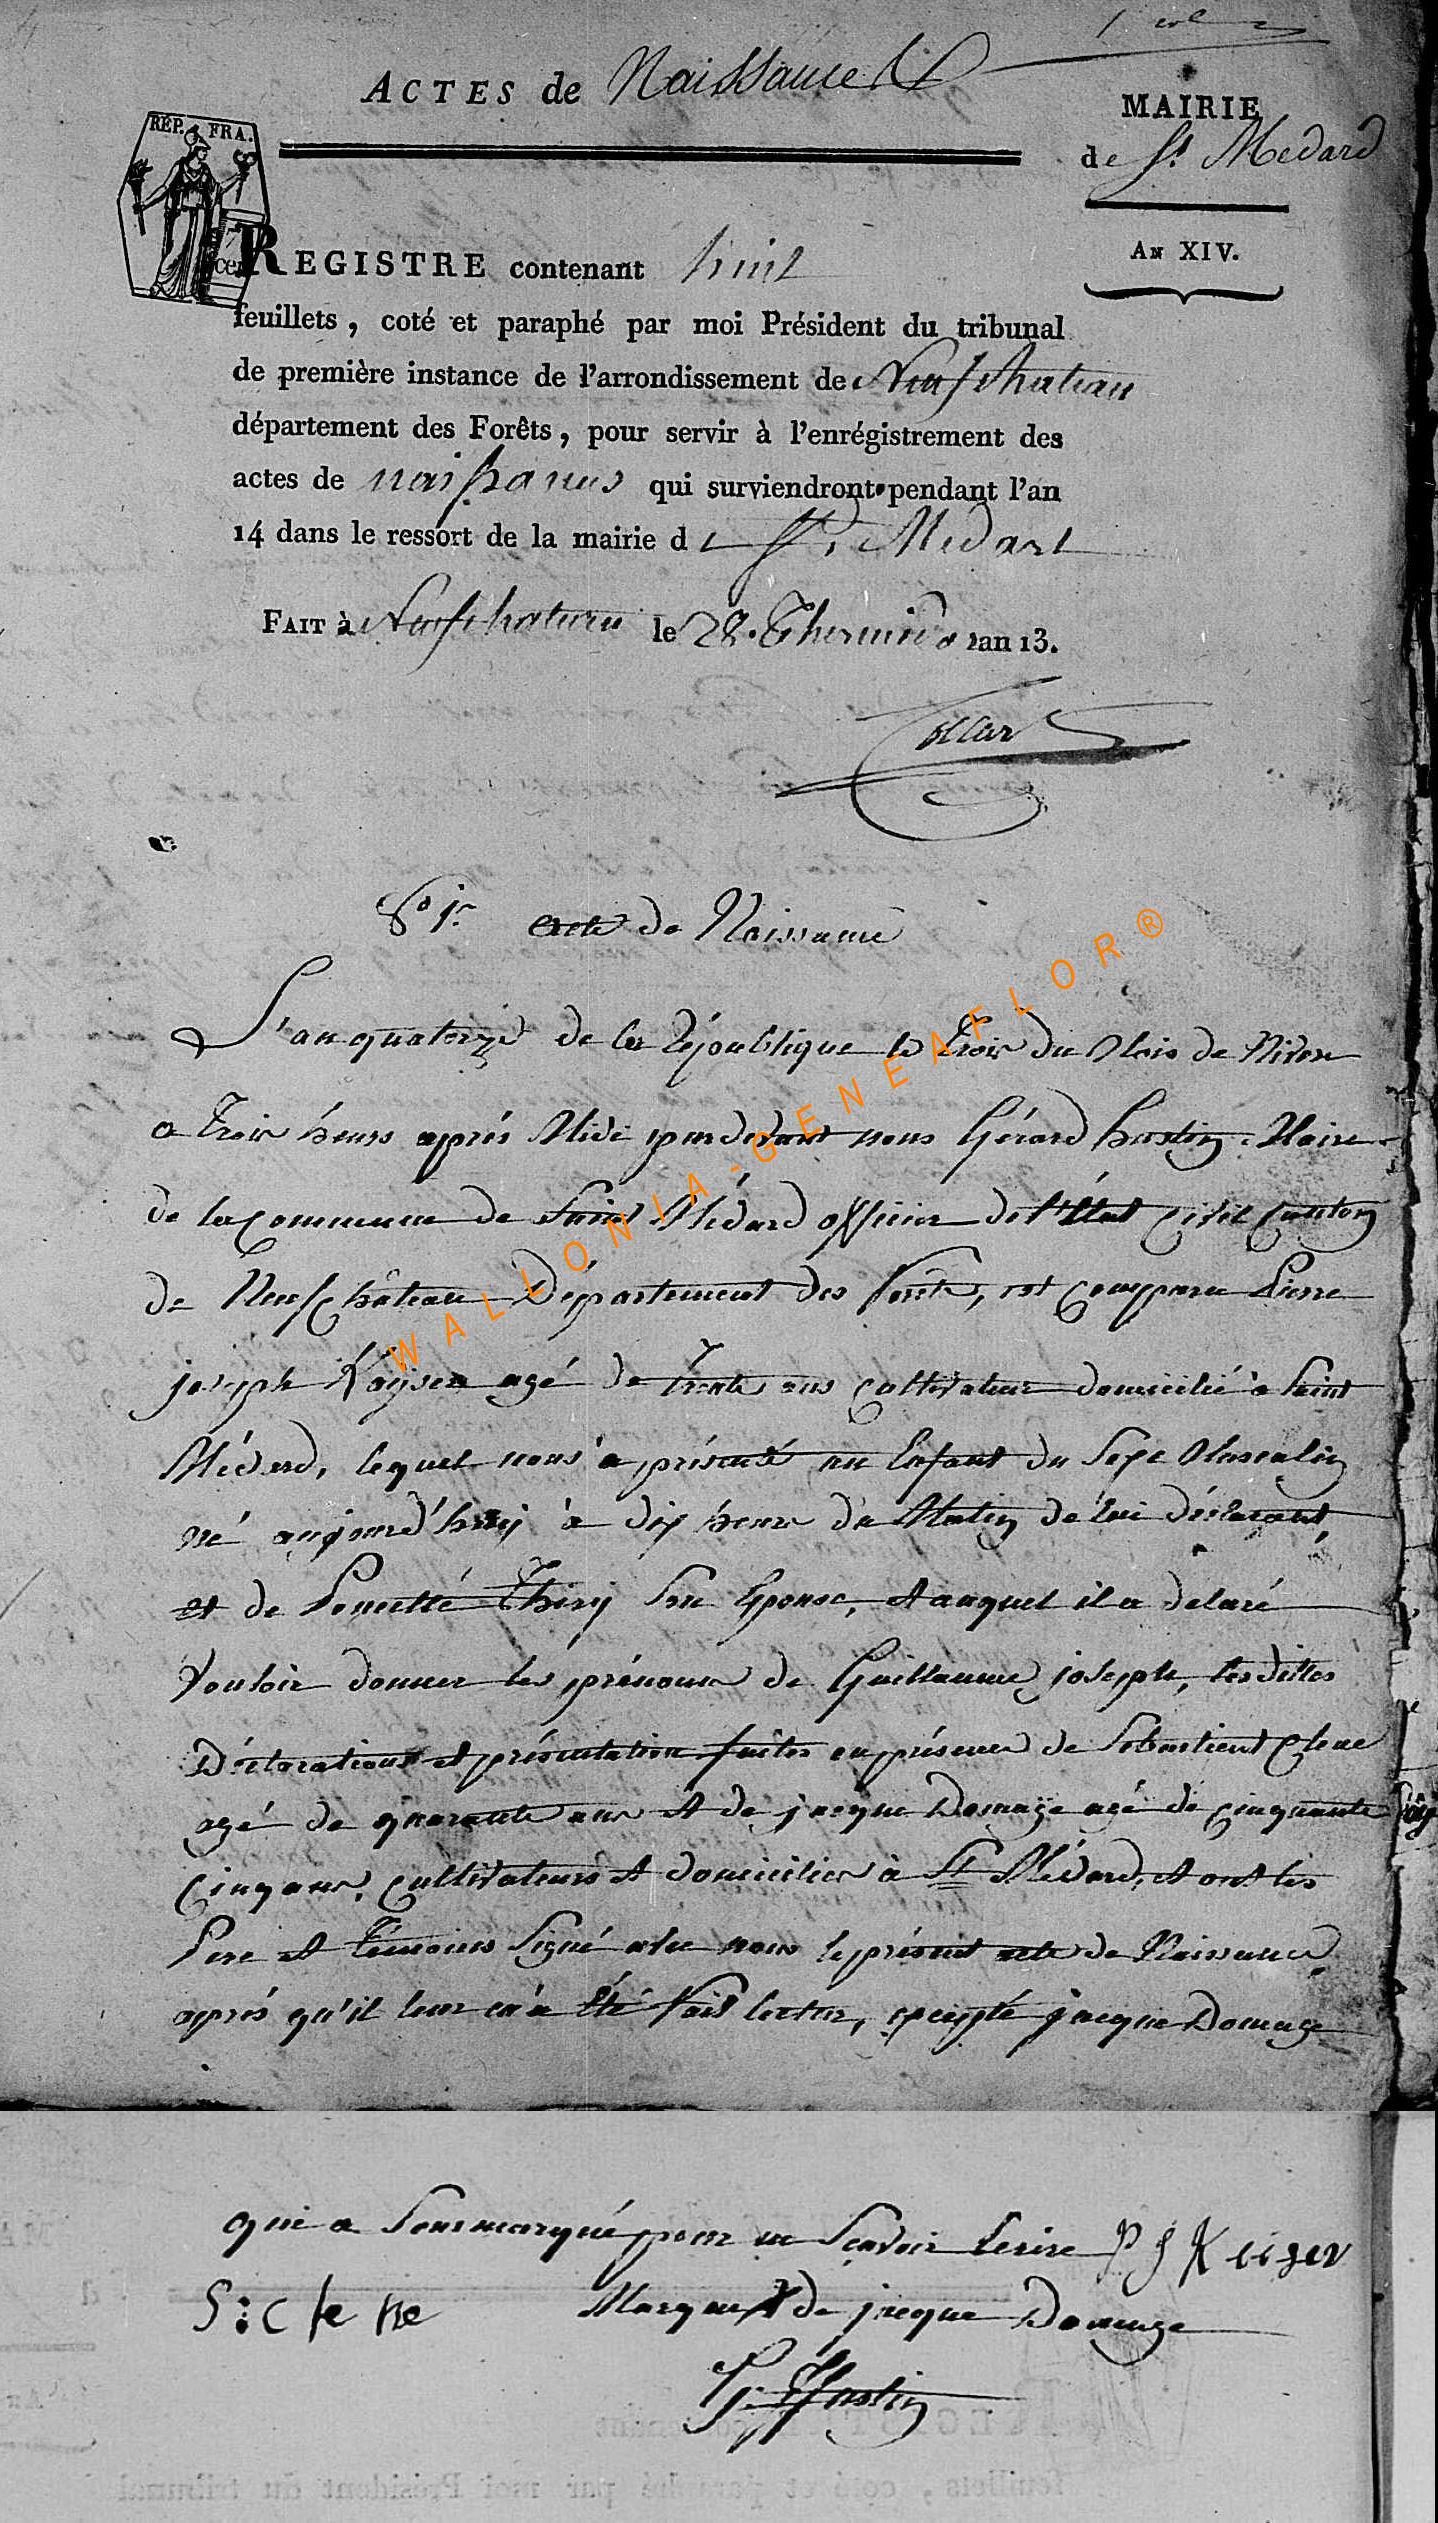 1 rol
ACTES de Naissance
MAIRIE
de St. Medard
RÉP. FRA.
AN XIV.
REGISTRE contenant huit
feuillets, coté et paraphé par moi Président du tribunal
de première instance de l'arrondissement de Neufchateau
département des Forêts, pour servir à l'enrégistrement des
actes de naissances qui surviendront pendant l'an
14 dans le ressort de la mairie de St. Medart
FAIT à Neufchateau le 28. Thermidor an 13.
Collar
No 1r acte de Naissance
L'an quatorze de la République le trois du Mois de Nivose
a trois heures aprés Midi pardevant nous Gérard hustin Maire
de la commune de Saint Médard officier de l'Etat Civil Canton
de Neufchâteau Département des forêts, est comparu Pierre
joseph Kayser agé de trente ans cultivateur domicilié à Saint
Médard, lequel nous a présenté un Enfant du Sexe Masculin
né aujourd'huy à dix heure du Matin de lui déclarant,
et de Poncette Thiry Son Epouse, et auquel il a delaré
Vouloir donner les prénoms de Guillaume joseph, lesdittes
Déclarations et présentation faites en présence de Sebastient Clene
agé de quarante ans et de jacque Domage agé de cinquante
Cinq ans, cultivateurs et domicilies à St Médard, et ont les
Pere et Témoins Signé avec nous le présent acte de Naissance,
aprés qu'il leur en a Eté fait lectur, excepté jacque Domage
qui a Sousmarqué pour ne Scavoir Ecrire P J Keiser
S:cle ne Marque X de jacque Domage
G: Hustin
WALLONIA-GENEAFLOR®